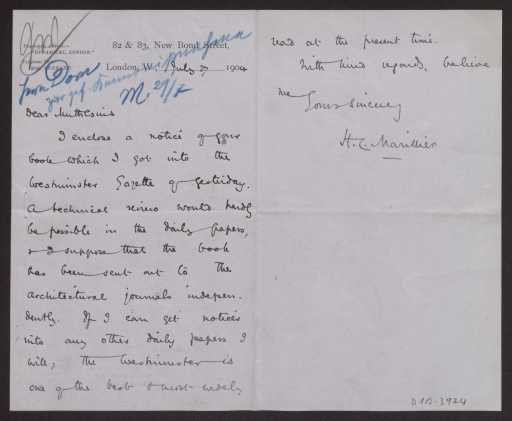 82 & 83, New Bond Street,
London, W., July 27 1904
M. 29/7
Dear Muthesius
I enclose a notice of your
book which I got into the
Westminster Gazette of yesterday.
A technical review would hardly
be possible in the daily papers,
& I suppose that the book
has been sent out to the
architectural journals indepen-
dently. If I can get notices
into any other daily papers I
will, the Westminster is
one of the best & most widely
read at the present time.
With kind regards, believe
me
Yours sincerely
H. C. Marillier
D 10-3924